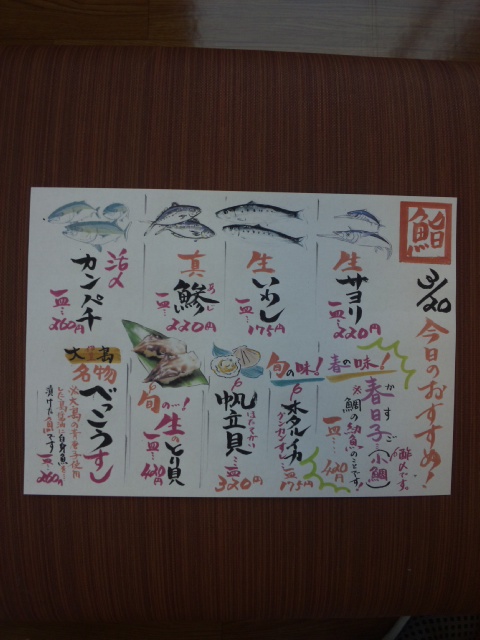 鮨
3/20 今日のおすすめ!
生
サヨリ
一皿…220円
生
いわし
一皿…175円
真
鯵
あじ
一皿…220円
活〆
カンパチ
一皿…260円
春の味!
春日子(小鯛)
かすご
酢〆です。
※鯛の幼魚のことです!
一皿…120円
旬の味!
ホタルイカ
(グンカンです)
一皿…175円
帆立貝
ほたてがい
一皿…320円
旬の…!
生のとり貝
一皿…420円
大島
名物
べっこうすし
一皿…260円